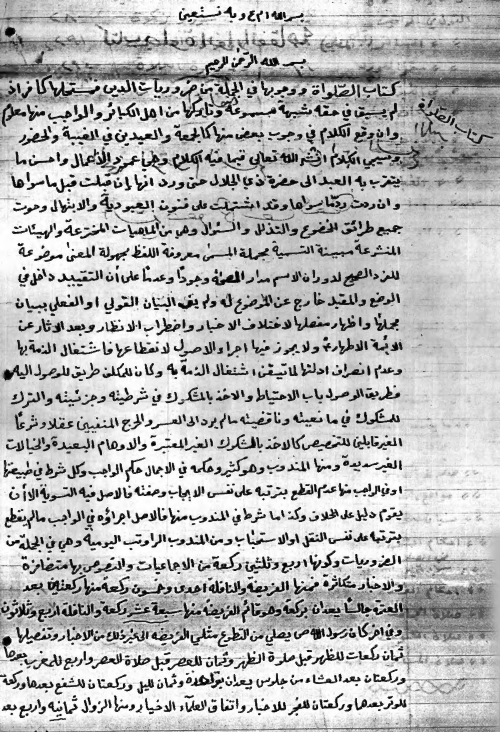 بسم الله
وبه نستعين
بسم الله الرحمن الرحيم
كتاب الصلوة ووجوبها في الجملة من ضروريات الدين فمستحلها كافر اذ
لم يسبق في حقه شبهة مسموعة وتاركها من اهل الكبائر والواجب منها معلوم
وان وقع الكلام في وجوب بعض منها كالجمعة والعيدين في الغيبة والحضور
وسيجيء الكلام انشاء الله تعالى فيما فيه الكلام وهي عمود الاعمال واحسن ما
يتقرب به العبد الى حضرة ذي الجلال حتى ورد انها إن قبلت قبل ما سواها
وان ردت رد ما سواها وقد اشتملت على فنون العبودية والابتهال وحوت
جميع طرائق الخضوع والتذلل والسؤال وهي من الماهيات المخترعة والهيئات
المنتزعة مبينة التسمية مجملة المسمى معروفة اللفظ مجهولة المعنى موضوعة
للفرد الصحيح لدوران الاسم مدار الصحة وجودا وعدما على أن التقييد داخل في
الوضع والمقيد خارج عن الموضوع له ولم يف البيان القولي او الفعلي ببيان
مجملها واظهار مفصلها لاختلاف الاخبار واضطراب الانظار وبعد الاثار عن
الائمة الاطهار ولا يجوز فيها اجراء الاصول لانقطاعها باشتغال الذمة بها
وعدم انصراف ادلتها لما تيقن اشتغال الذمة به وكان للمكلف طريق للوصول اليه
فطريقة الوصول باب الاحتياط والاخذ بالمشكوك في شرطيته وجزئيته والترك
للمشكوك في مانعيته وناقضيته مالم يرد الى العسر والحرج المنفيين عقلا وشرعا
الغير قابلين للتخصيص كالاخذ بالمشكوك الغير المعتبرة والاوهام البعيدة والخيالات
الغير سديدة ومنها المندوب وهو كثير وحكمه في الاجمال حكم الواجب وكل شرط في طبيعتها
او في الواجب منها عدم القطع بترتبه على نفس الايجاب وصفته فالاصل فيه التسوية الا أن
يقوم دليل على الخلاف وكذا ما شرط في المندوب منها فالاصل اجراؤه في الواجب مالم يقطع
بترتبه على نفس النفل او الاستحباب ومن المندوب الرواتب اليومية وهي في الجملة من
الضروريات وكونها اربع وثلثين ركعة من الاجماعيات والنصوص بها متضافرة
والاخبار متكاثرة فمنها الفريضة والنافلة احدى وخمسون ركعة منها ركعتين بعد
العتمة جالسا يعدان بركعة وهو قائم الفريضة منها سبعة عشر ركعة والنافلة اربع وثلاثون
وفي اخر كان رسول الله ص يصلي من التطوع مثلي الفريضة الى غير ذلك من الاخبار وتفصيلها
ثمان ركعات للظهر قبل صلوة الظهر وثمان للعصر قبل صلاة العصر واربع للمغرب بعدها
وركعتان بعد العشاء من جلوس يعدان بواحدة وثمان لليل وركعتان للشفع بعدها وركعة
للوتر بعدها وركعتان للفجر للاخبار واتفاق العلماء الاخيار ومنها الزوال ثمانية واربع بعد
كتاب الصلوة